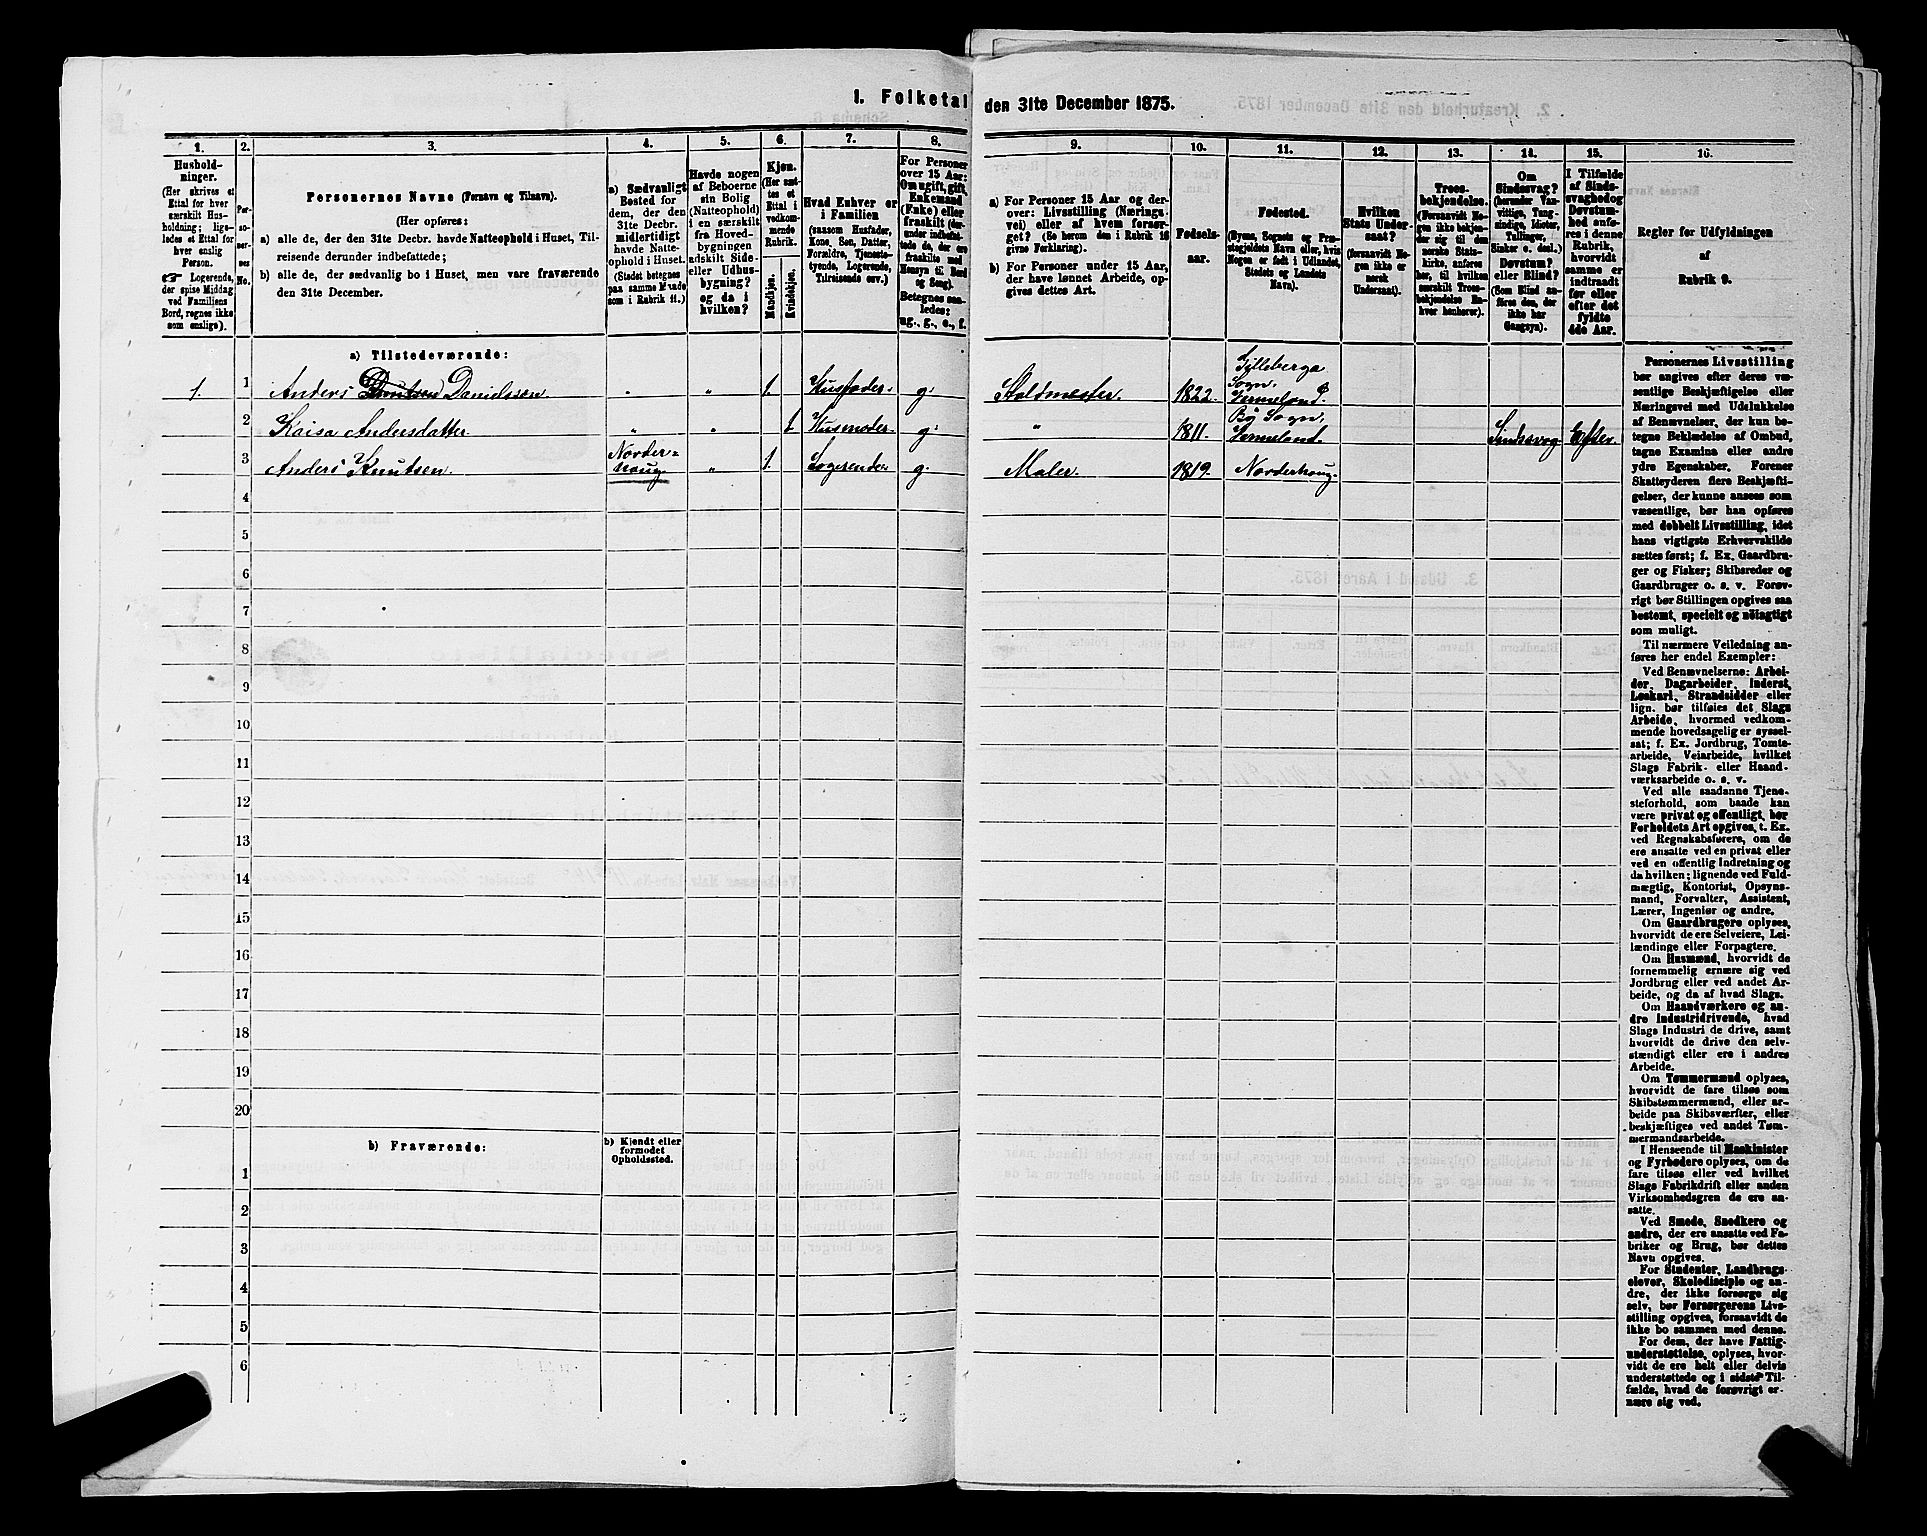 1. Folketal den 31te December 1875.
1.
Hushold-
ninger.
(Her skrives et
Ettal for hver
særskilt Hus-
holdning; lige-
ledes et Ettal for
hver enslig
Person.
Logerende,
der spise Middag
ved Familiens
Bord, regnes ikke
som enslige).
2.
Per-
so-
ner-
nes
No.
3.
Personernes Navne (Fornavn og Tilnavn).
(Her opføres:
a) alle de, der den 31te Decbr. havde Natteophold i Huset, Til-
reisende derunder indbefattede;
b) alle de, der sædvanlig bo i Huset, men vare fraværende
den 31te December.
4.
a) Sædvanligt
Bosted for
dem, der den
31te Decbr.
midlertidigt
havde Natte-
ophold i Huset.
(Stedet betegnes
paa samme Maade
som i Rubrik 11.)
5.
Havde nogen
af Beboerne
sin Bolig
(Natteophold)
i en særskilt
fra Hoved-
bygningen
adskilt Side-
eller Udhus-
bygning?
og da i
hvilken?
6.
Kjøn.
(Her sæt-
tes et
Ettal i
vedkom-
mende
Rubrik.
Mandkjøn.
Kvindekjøn.
7.
Hvad Enhver er
i Familien
(saasom Husfader,
Kone, Søn, Datter,
Forældre, Tjeneste-
tyende, Logerende,
Tilreisende osv.)
8.
For Personer
over 15 Aar:
Om ugift, gift,
Enkemand
(Enke) eller
fraskilt (der-
under indbefat-
tede de, der ere
fraskilte med
Hensyn til Bord
og Seng).
Betegnes saa-
ledes:
ug., g., e., f.
9.
a) For Personer 15 Aar og der-
over: Livsstilling (Nærings-
vei) eller af hvem forsør-
get? (Se herom den i Rubrik 16
givne Forklaring).
b) For Personer under 15 Aar,
der have lønnet Arbeide, op-
gives dettes Art.
10.
Fødsels-
aar.
11.
Fødested.
(Byens, Sognets og Præ-
stegjeldets Navn eller, hvis
Nogen er født i Udlandet,
Stedets og Landets
Navn).
12.
Hvilken
Stats Under-
saat?
(forsaavidt No-
gen ikke er
norsk
Undersaat).
13.
Troes-
bekjendelse.
(Forsaavidt No-
gen ikke bekjen-
der sig til den
norske Stats-
kirke, anføres
her, til hvilken
særskilt Troes-
bekjendelse En-
hver henhører).
14.
Om
Sindssvag?
(herunder Van-
vittige, Tung-
sindige, Idioter,
Tullinger,
Sinker o. desl.)
Døvstum?
eller Blind?
(Som Blind an-
føres den, der
ikke har
Gangsyn).
15.
I Tilfælde
af Sinds-
svaghed og
Døvstum-
hed anfø-
res i denne
Rubrik,
hvorvidt
samme er
indtraadt
før eller
efter det
fyldte
4de Aar.
16.
Regler for Udfyldningen
af
Rubrik 9.
a) Tilstedeværende:
1. 1 Anders Knutsen Danielssen " " 1. Husfader. g. Staldmester. 1822. Gilleberga Sogn. Vermeland.
2 Kaisa Andersdatter. " " 1 Husmoder. g. " 1811. By Sogn. Vermeland. Sindssvag Efter.
3 Anders Knutsen. Norder=
houg. " 1. Logerende. g. Maler. 1819. Norderhoug.
4
5
6
7
8
9
10
11
12
13
14
15
16
17
18
19
20
b) Fraværende:
b) Kjendt eller
formodet
Opholdssted.
1
2
3
4
5
6
Personernes Livsstilling
bør angives efter deres væ-
sentlige Beskjæftigelse eller
Næringsvei med Udelukkelse
af Benævnelser, der kun be-
tegne Beklædelse af Ombud,
tagne Examina eller andre
ydre Egenskaber. Forener
Skatteyderen flere Beskjæfti-
gelser, der kunne ansees som
væsentlige, bør han opføres
med dobbelt Livsstilling, idet
hans vigtigste Erhvervskilde
sættes først; f. Ex. Gaardbru-
ger og Fisker; Skibsreder og
Gaardbruger o. s. v. Forøv-
rigt bør Stillingen opgives saa
bestemt, specielt og nøiagtigt
som muligt.
Til nærmere Veiledning an-
føres her endel Exempler:
Ved Benævnelserne: Arbei-
der, Dagarbeider, Inderst,
Løskarl, Strandsidder eller
lign. bør tilføies det Slags
Arbeide, hvormed vedkom-
mende hovedsagelig er syssel-
sat; f. Ex. Jordbrug, Tomte-
arbeide, Veiarbeide, hvilket
Slags Fabrik- eller Haand-
værksarbeide o. s. v.
Ved alle saadanne Tjene-
steforhold, som baade kan
være privat og offentligt, bør
Forholdets Art opgives, t. Ex.
ved Regnskabsførere, om de
ere ansatte ved en privat eller
ved en offentlig Indretning og
da hvilken; lignende ved Fuld-
mægtig, Kontorist, Opsyns-
mand, Forvalter, Assistent,
Lærer, Ingeniør og andre.
Om Gaardbrugere oplyses,
hvorvidt de ere Selveiere, Lei-
lændinge eller Forpagtere.
Om Husmænd, hvorvidt de
fornemmelig ernære sig ved
Jordbrug eller ved andet Ar-
beide, og da af hvad Slags.
Om Haandværkere og an-
dre Industridrivende, hvad
Slags Industri de drive, samt
hvorvidt de drive den selv-
stændigt eller ere i andres
Arbeide.
Om Tømmermænd oplyses,
hvorvidt de fare tilsøs som
Skibstømmermænd, eller ar-
beide paa Skibsværfter, eller
beskjæftiges ved andet Tøm-
mermandsarbeide.
I Henseende til Maskinister
og Fyrbødere oplyses, om de
fare tilsøs eller ved hvilket
Slags Fabrikdrift eller anden
Virksomhedsgren de ere an-
satte.
Ved Smede, Snedkere og
andre, der ere ansatte ved Fa-
briker og Brug, bør dettes
Navn opgives.
For Studenter, Landbrugs-
elever, Skoledisciple og an-
dre, der ikke forsørge sig
selv, bør Forsørgerens Livs-
stilling opgives, forsaavidt de
ikke bo sammen med denne.
For dem, der have Fattig-
understøttelse, oplyses, hvor-
vidt de ere helt eller delvis
understøttede og i sidste Til-
fælde, hvad de forøvrigt er-
nære sig ved.